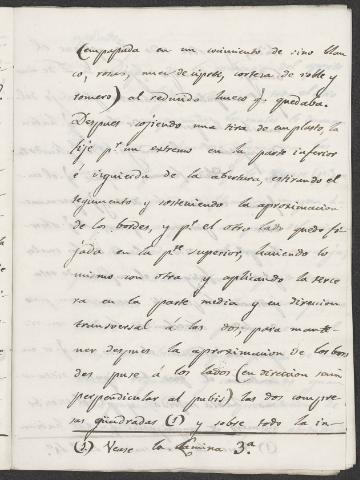 (empapada en un cocimiento de vino blan
co, rosas, nuez de ciprés, corteza de roble y
romero) al redundo hueco q.e quedaba.
Despues cojiendo una tira de emplasto, la
fije p.r un extremo en la parte inferior
é izquierda de la abertura, estirando el
tegumento y sosteniendo la aproximacion
de los bordes, y p.r el otro lado quedo fi-
jada en la p.te superior, haciendo lo
mismo con otra y aplicando la terce
ra en la parte media y en direccion
transversal á las dos; para mante-
ner despues la aproximacion de los bor
des puse á los lados (en direccion
perpendicular al pubis) las dos compre-
sas quadradas (3) y sobre todo la in-
(3) Vease la Lamina 3.a